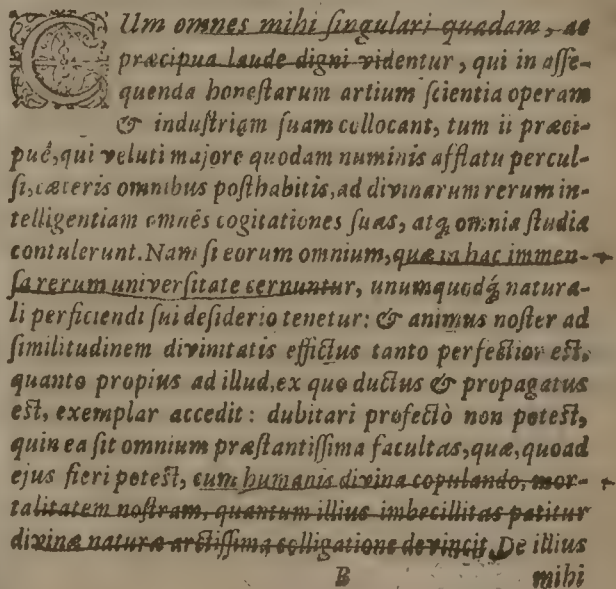 CUm omnes mihi ſingulari quadam, ac
præcipua laude digni videntur, qui in aſſe-
quenda honeſtarum artium ſcientia operam
& induſtriam ſuam collocant, tum ii præci-
puè, qui veluti majore quodam numinis afflatu percul-
ſi, cæteris omnibus poſthabitis, ad divinarum rerum in-
telligentiam omnés cogitationes ſuas, atq́; omnia ſtudia
contulerunt. Nam ſi eorum omnium, quæ in hac immen-
ſa rerum univerſitate cernuntur, unumquodq́; natura-
li perficiendi ſui deſiderio tenetur: & animus noſter ad
ſimilitudinem divinitatis effictus tanto perfectior eſt,
quanto propius ad illud, ex quo ductus & propagatus
eſt, exemplar accedit: dubitari profectò non poteſt,
quin ea ſit omnium præſtantiſſima facultas, quæ, quoad
ejus fieri poteſt, cum humanis divina copulando, mor-
talitatem noſtram, quantum illius imbecillitas patitur
divinæ naturæ arctiſſima colligatione devincit. De illius
B mihi